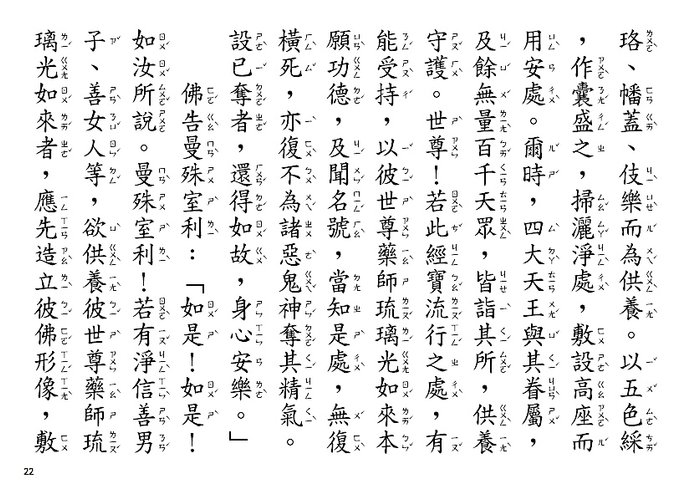 珞、幡蓋、伎樂而為供養。以五色綵
，作囊盛之，掃灑淨處，敷設高座而
用安處。爾時，四大天王與其眷屬，
及餘無量百千天眾，皆詣其所，供養
守護。世尊！若此經寶流行之處，有
能受持，以彼世尊藥師琉璃光如來本
願功德，及聞名號，當知是處，無復
橫死，亦復不為諸惡鬼神奪其精氣。
設已奪者，還得如故，身心安樂。」
佛告曼殊室利：「如是！如是！
如汝所說。曼殊室利！若有淨信善男
子、善女人等，欲供養彼世尊藥師琉
璃光如來者，應先造立彼佛形像，敷
22